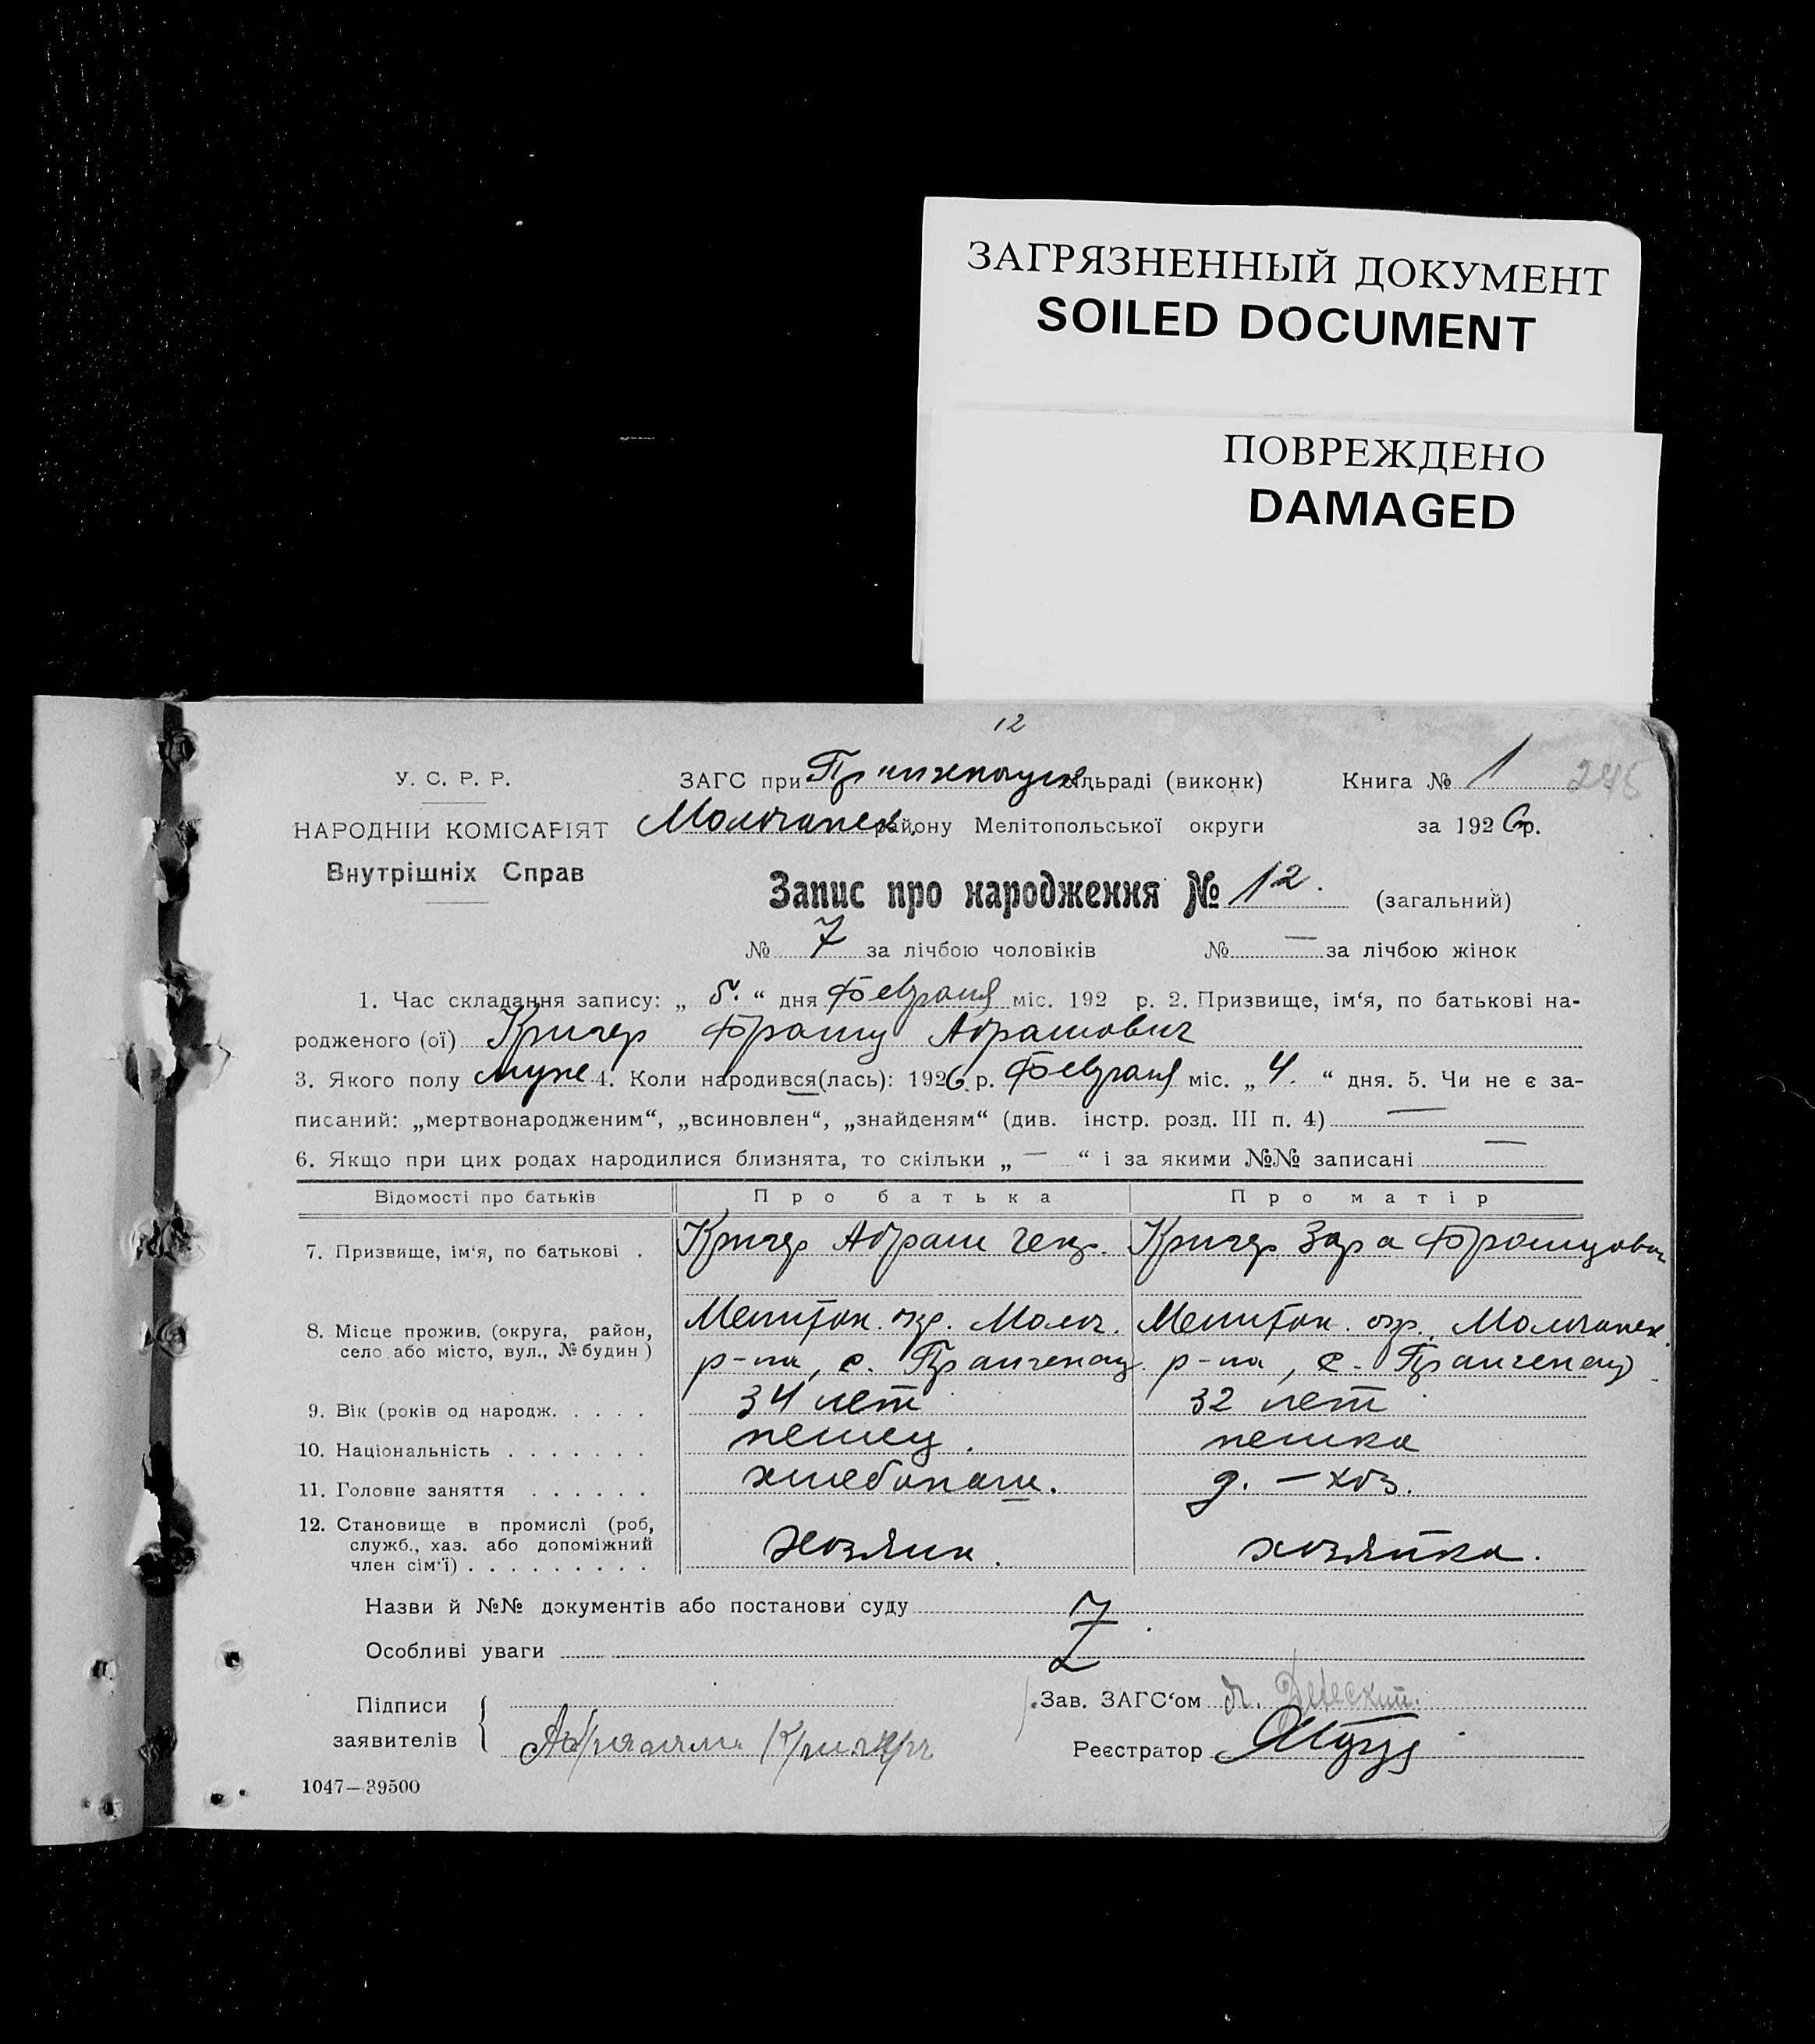 ЗАГРЯЗНЕННЫЙ ДОКУМЕНТ
SOILED DOCUMENT
ПОВРЕЖДЕНО
DAMAGED
12
У. С. Р. Р.
ЗАГС при сільраді (виконк) Книга № 1 245
НАРОДНІЙ КОМІСАРІЯТ
Молочанск. району Мелітопольської округи за 1926 р.
Внутрішніх Справ
Запис про народження № 12. (загальний)
№ 7 за лічбою чоловіків № — за лічбою жінок
1. Час складання запису: „ 5. “ дня Февраля міс. 192 р. 2. Призвище, ім‘я, по батькові на-
родженого (ої) Кригер Франц Абрамович
3. Якого полу муже 4. Коли народився(лась): 1926 р. Февраля міс. „ 4. “ дня. 5. Чи не є за-
писаний: „мертвонародженим“, „всиновлен“, „знайденям“ (див. інстр. розд. III п. 4) —
6. Якщо при цих родах народилися близнята, то скільки „ — “ і за якими №№ записані —
Відомості про батьків Про батька Про матір
7. Призвище, ім‘я, по батькові . Кригер Абрам Генр. Кригер Зара Францовн
8. Місце прожив. (округа, район, Мелитоп. окр. Молоч. Мелитоп. окр. Молочанск.
село або місто, вул., № будин ) р-на, с. Прангенау. р-на, с. Прангенау
9. Вік (років од народж. . . . . 34 лет 32 лет
10. Національність . . . . . . . немец. немка
11. Головне заняття . . . . . . хлебопаш. д. — хоз.
12. Становище в промислі (роб,
служб., хаз. або допоміжний Хозяин. хозяйка.
член сім‘ї) . . . . . . . . .
Назви й №№ документів або постанови суду
Особливі уваги Z
Підписи
Зав. ЗАГС‘ом
заявителів Абраам Кригер
Реєстратор
1047—39500